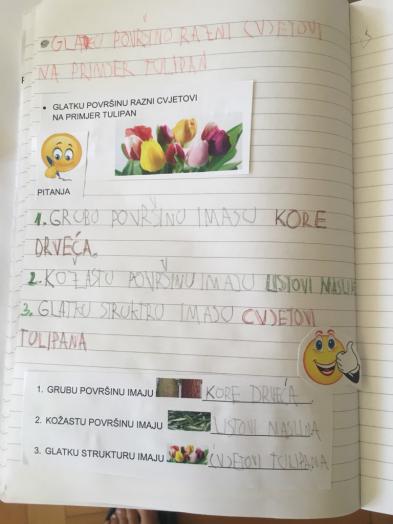 • GLATKU POVRŠINU RAZNI CVJETOVI
NA PRIMJER TULIPAN
• GLATKU POVRŠINU RAZNI CVJETOVI
NA PRIMJER TULIPAN
PITANJA
1. GRUBU POVRŠINU IMAJU KORE
DRVEĆA.
2. KOŽASTU POVRŠINU IMAJU LISTOVI MASLINA
3. GLATKU STRUKTRU IMAJU CVJETOVI
TULIPANA
1. GRUBU POVRŠINU IMAJU KORE DRVEĆA
2. KOŽASTU POVRŠINU IMAJU LISTOVI MASLINA
3. GLATKU STRUKTURU IMAJU CVJETOVI TULIPANA